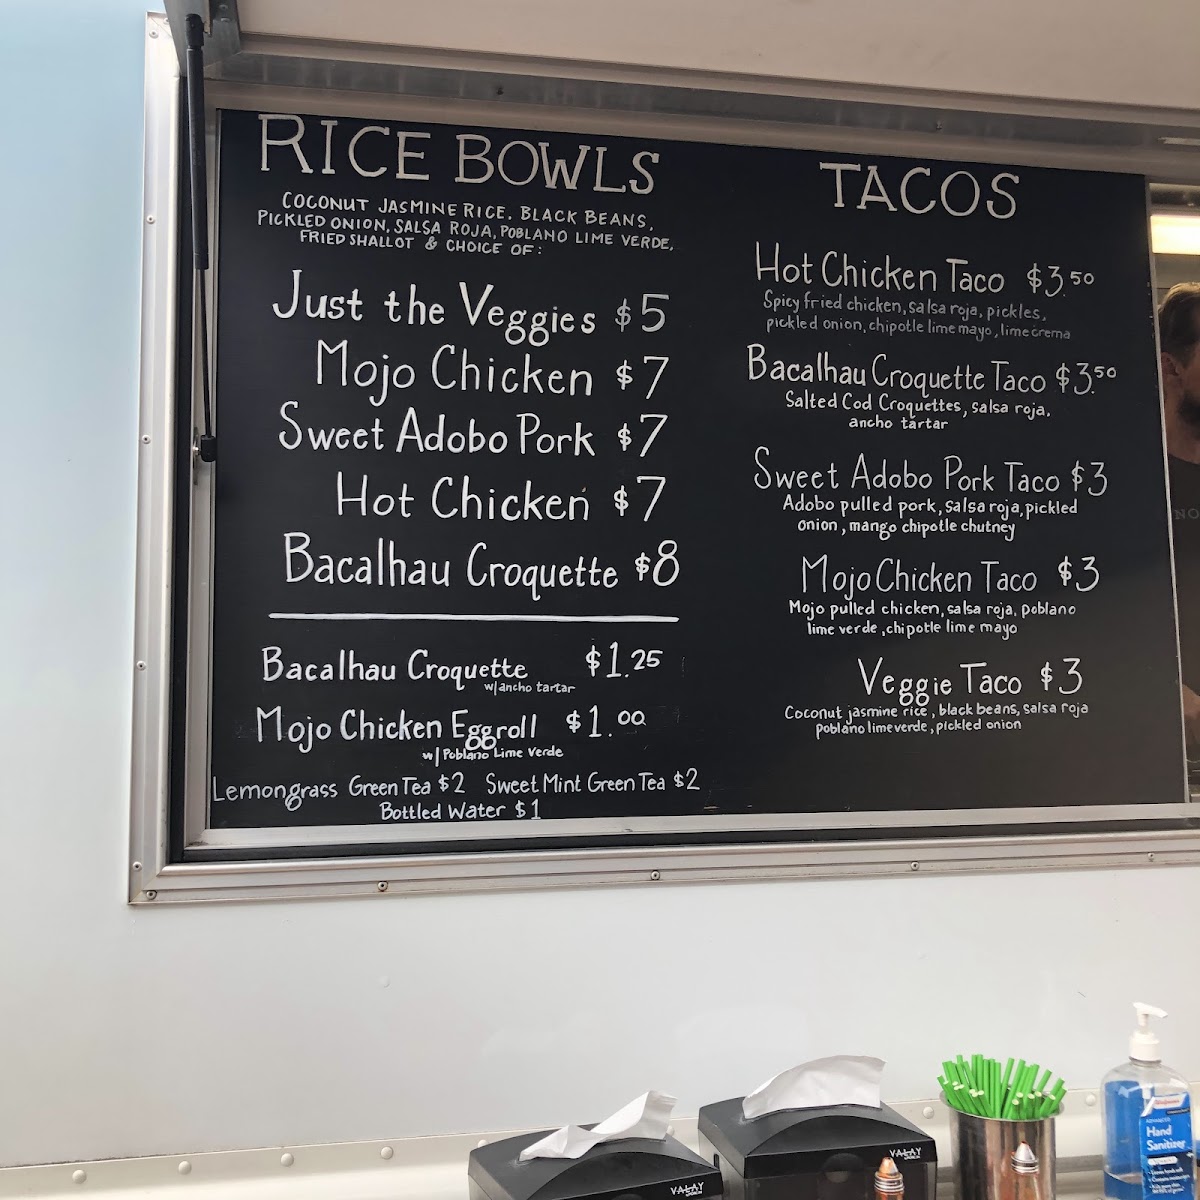 RICE BOWLS
COCONUT JASMINE RICE. BLACK BEANS,
PICKLED ONION, SALSA ROJA, POBLANO LIME VERDE,
FRIED SHALLOT & CHOICE OF:
Just the Veggies $5
Mojo Chicken $7
Sweet Adobo Pork $7
Hot Chicken $7
Bacalhau Croquette $8
Bacalhau Croquette $1.25
w/ancho tartar
Mojo Chicken Eggroll $1.00
w/ Poblano Lime Verde
Lemongrass Green Tea $2 Sweet Mint Green Tea $2
Bottled Water $1
TACOS
Hot Chicken Taco $3.50
Spicy fried chicken, salsa roja, pickles,
pickled onion, chipotle lime mayo, lime crema
Bacalhau Croquette Taco $3.50
Salted Cod Croquettes, salsa roja,
ancho tartar
Sweet Adobo Pork Taco $3
Adobo pulled pork, salsa roja, pickled
onion, mango chipotle chutney
Mojo Chicken Taco $3
Mojo pulled chicken, salsa roja, poblano
lime verde, chipotle lime mayo
Veggie Taco $3
Coconut jasmine rice, black beans, salsa roja
poblano lime verde, pickled onion
NO
VALAY
VALAY
Walgreens
Hand
Sanitizer